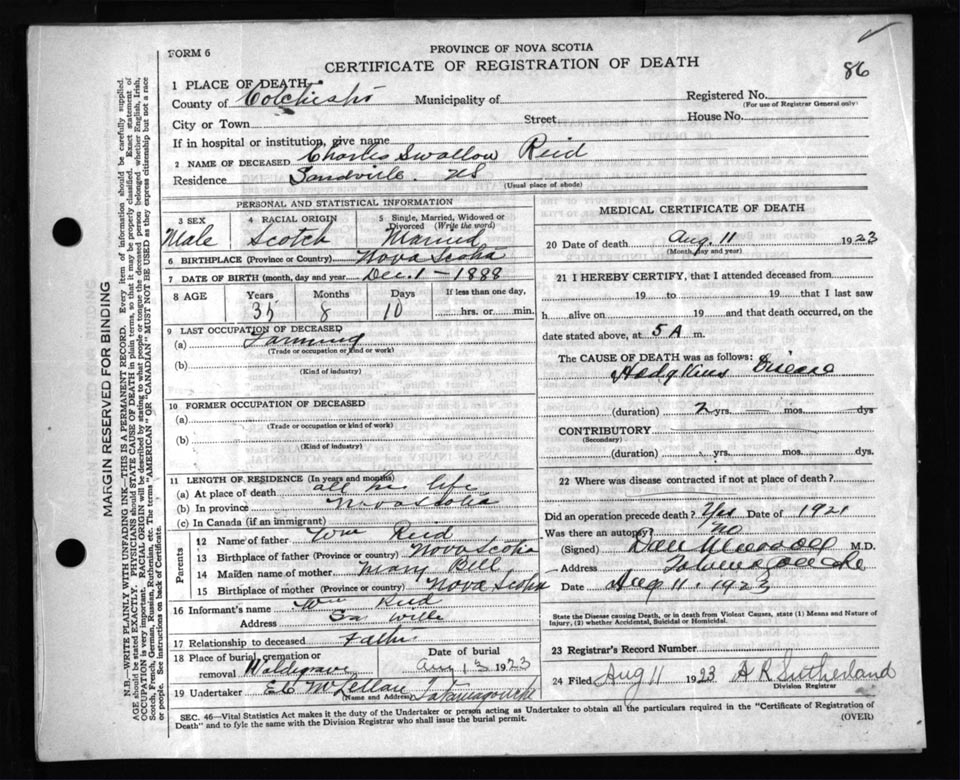 FORM 6
PROVINCE OF NOVA SCOTIA
CERTIFICATE OF REGISTRATION OF DEATH
86
1 PLACE OF DEATH
County of Colchester Municipality of
Registered No.
(For use of Registrar General only)
City or Town Street House No.
If in hospital or institution, give name
2 NAME OF DECEASED Charles Swallow Reid
Residence Sandville. NS
(Usual place of abode)
PERSONAL AND STATISTICAL INFORMATION
3 SEX Male
4 RACIAL ORIGIN Scotch
5 Single, Married, Widowed or Divorced (Write the word) Married
6 BIRTHPLACE (Province or Country) Nova Scotia
7 DATE OF BIRTH (month, day and year) Dec. 1 - 1888
8 AGE Years Months Days If less than one day,
35 8 10 hrs. or min.
9 LAST OCCUPATION OF DECEASED
(a) Farming
(Trade or occupation or kind or work)
(b)
(Kind of industry)
10 FORMER OCCUPATION OF DECEASED
(a)
(Trade or occupation or kind of work)
(b)
(Kind of industry)
11 LENGTH OF RESIDENCE (In years and months)
(a) At place of death all his life
(b) In province Nova Scotia
(c) In Canada (if an immigrant)
Parents
12 Name of father Wm Reid
13 Birthplace of father (Province or country) Nova Scotia
14 Maiden name of mother Mary Bell
15 Birthplace of mother (Province or country) Nova Scotia
16 Informant's name Wm Reid
Address
17 Relationship to deceased Father
18 Place of burial, cremation or removal Waldegrave
Date of burial
Aug 13 1923
19 Undertaker McLellan Tatamagouche
Name and Address
MEDICAL CERTIFICATE OF DEATH
20 Date of death Aug. 11 1923
(Month, day and year)
21 I HEREBY CERTIFY, that I attended deceased from
19 to 19 that I last saw
h alive on 19 and that death occurred, on
date stated above, at 5 A m.
The CAUSE OF DEATH was as follows:
Hodgkins Disease
(duration) 2 yrs. mos. dys
CONTRIBUTORY
(Secondary)
(duration) yrs. mos. dys.
22 Where was disease contracted if not at place of death?
Did an operation precede death? Yes Date of 1921
Was there an autopsy? NO
(Signed) Dan Murray M.D.
Address Tatamagouche
Date Aug 11. 1923
State the Disease causing Death, or in death from Violent Causes, state (1) Means and Nature of Injury, (2) whether Accidental, Suicidal or Homicidal.
23 Registrar's Record Number
24 Filed Aug 11 1923 A R Sutherland
Division Registrar
SEC. 46—Vital Statistics Act makes it the duty of the Undertaker or person acting as Undertaker to obtain all the particulars required in the "Certificate of Registration of
Death" and to fyle the same with the Division Registrar who shall issue the burial permit.
(OVER)
MARGIN RESERVED FOR BINDING
N.B.—WRITE PLAINLY WITH UNFADING INK—THIS IS A PERMANENT RECORD. Every item of information should be carefully supplied.
AGE should be stated EXACTLY. PHYSICIANS should STATE CAUSE OF DEATH in plain terms, so that it may be properly classified. Exact statement of
OCCUPATION is very important. RACIAL ORIGIN will be described by stating to what people or tongue the deceased person belonged whether English, Irish,
Scotch, French, German, Russian, Ruthenian, etc. The terms "AMERICAN" OR "CANADIAN" MUST NOT BE USED as they express citizenship but not a race
or people. See instructions on back of Certificate.